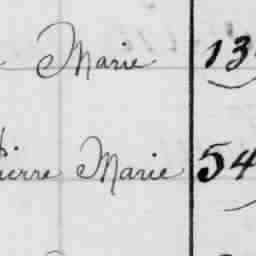 Marie 13
Pierre Marie 54